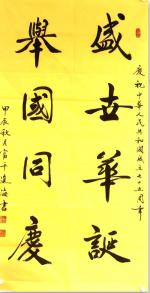 慶祝中華人民共和國成立七十五周年
盛世華誕
舉國同慶
甲辰秋月富千連海書